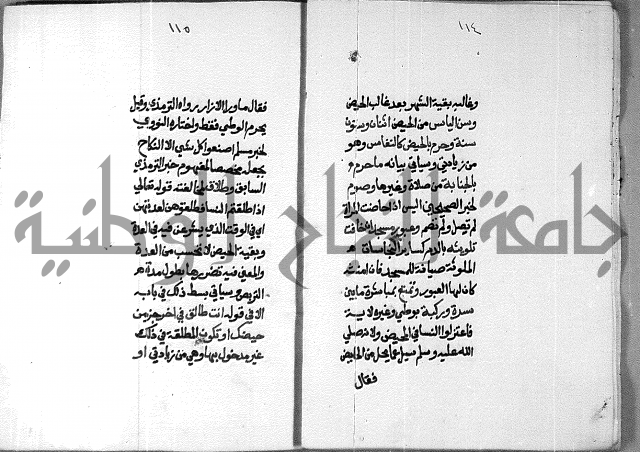 ١١٤
وغالبه بقية الشهر بعد غالب الحيض
وسن الياس من الحيض اثنان وستون
سنة وحرم بالحيض كالنفاس وهو
من زيادتي وسياتي بيانه ما حرم
بالجنابة من صلاة وغيرها وصوم
لخبر الصحيحين اليس اذا حاضت المراة
لم تصل ولم تصم وعبور مسجد ان خافت
تلويثه بالدم كسائر النجاسات
الملوثة صيانة للمسجد فان امنته
كان لها العبور وتمتع بمباشرة ما بين
سرة وركبة بوطي وغيره لاية
فاعتزلوا النسا في المحيض ولانه صلي
الله عليه وسلم سيل عما يحل من الحايض
فقال
١١٥
فقال ما ورا الازار رواه الترمذي وقيل
يحرم الوطي فقط واختاره النووي
لخبر مسلم اصنعوا كل شي الا النكاح
بجعل مخصصا لمفهوم خبر الترمذي
السابق وطلاق لمخالفته قوله تعالي
اذا طلقتم النسا فطلقوهن لعدتهن
اي في الوقت الذي يشرعن فيه في العدة
وبقية الحيض لا تحسب من العدة
والمعني فيه تضررها بطول مدة
التربص وسياتي بسط ذلك في بابه
الا في قوله انت طالق في اخر جز من
حيضك او تكون المطلقة في ذلك
غير مدخول بها وهي من زيادتي او
جامعة النجاح الوطنية